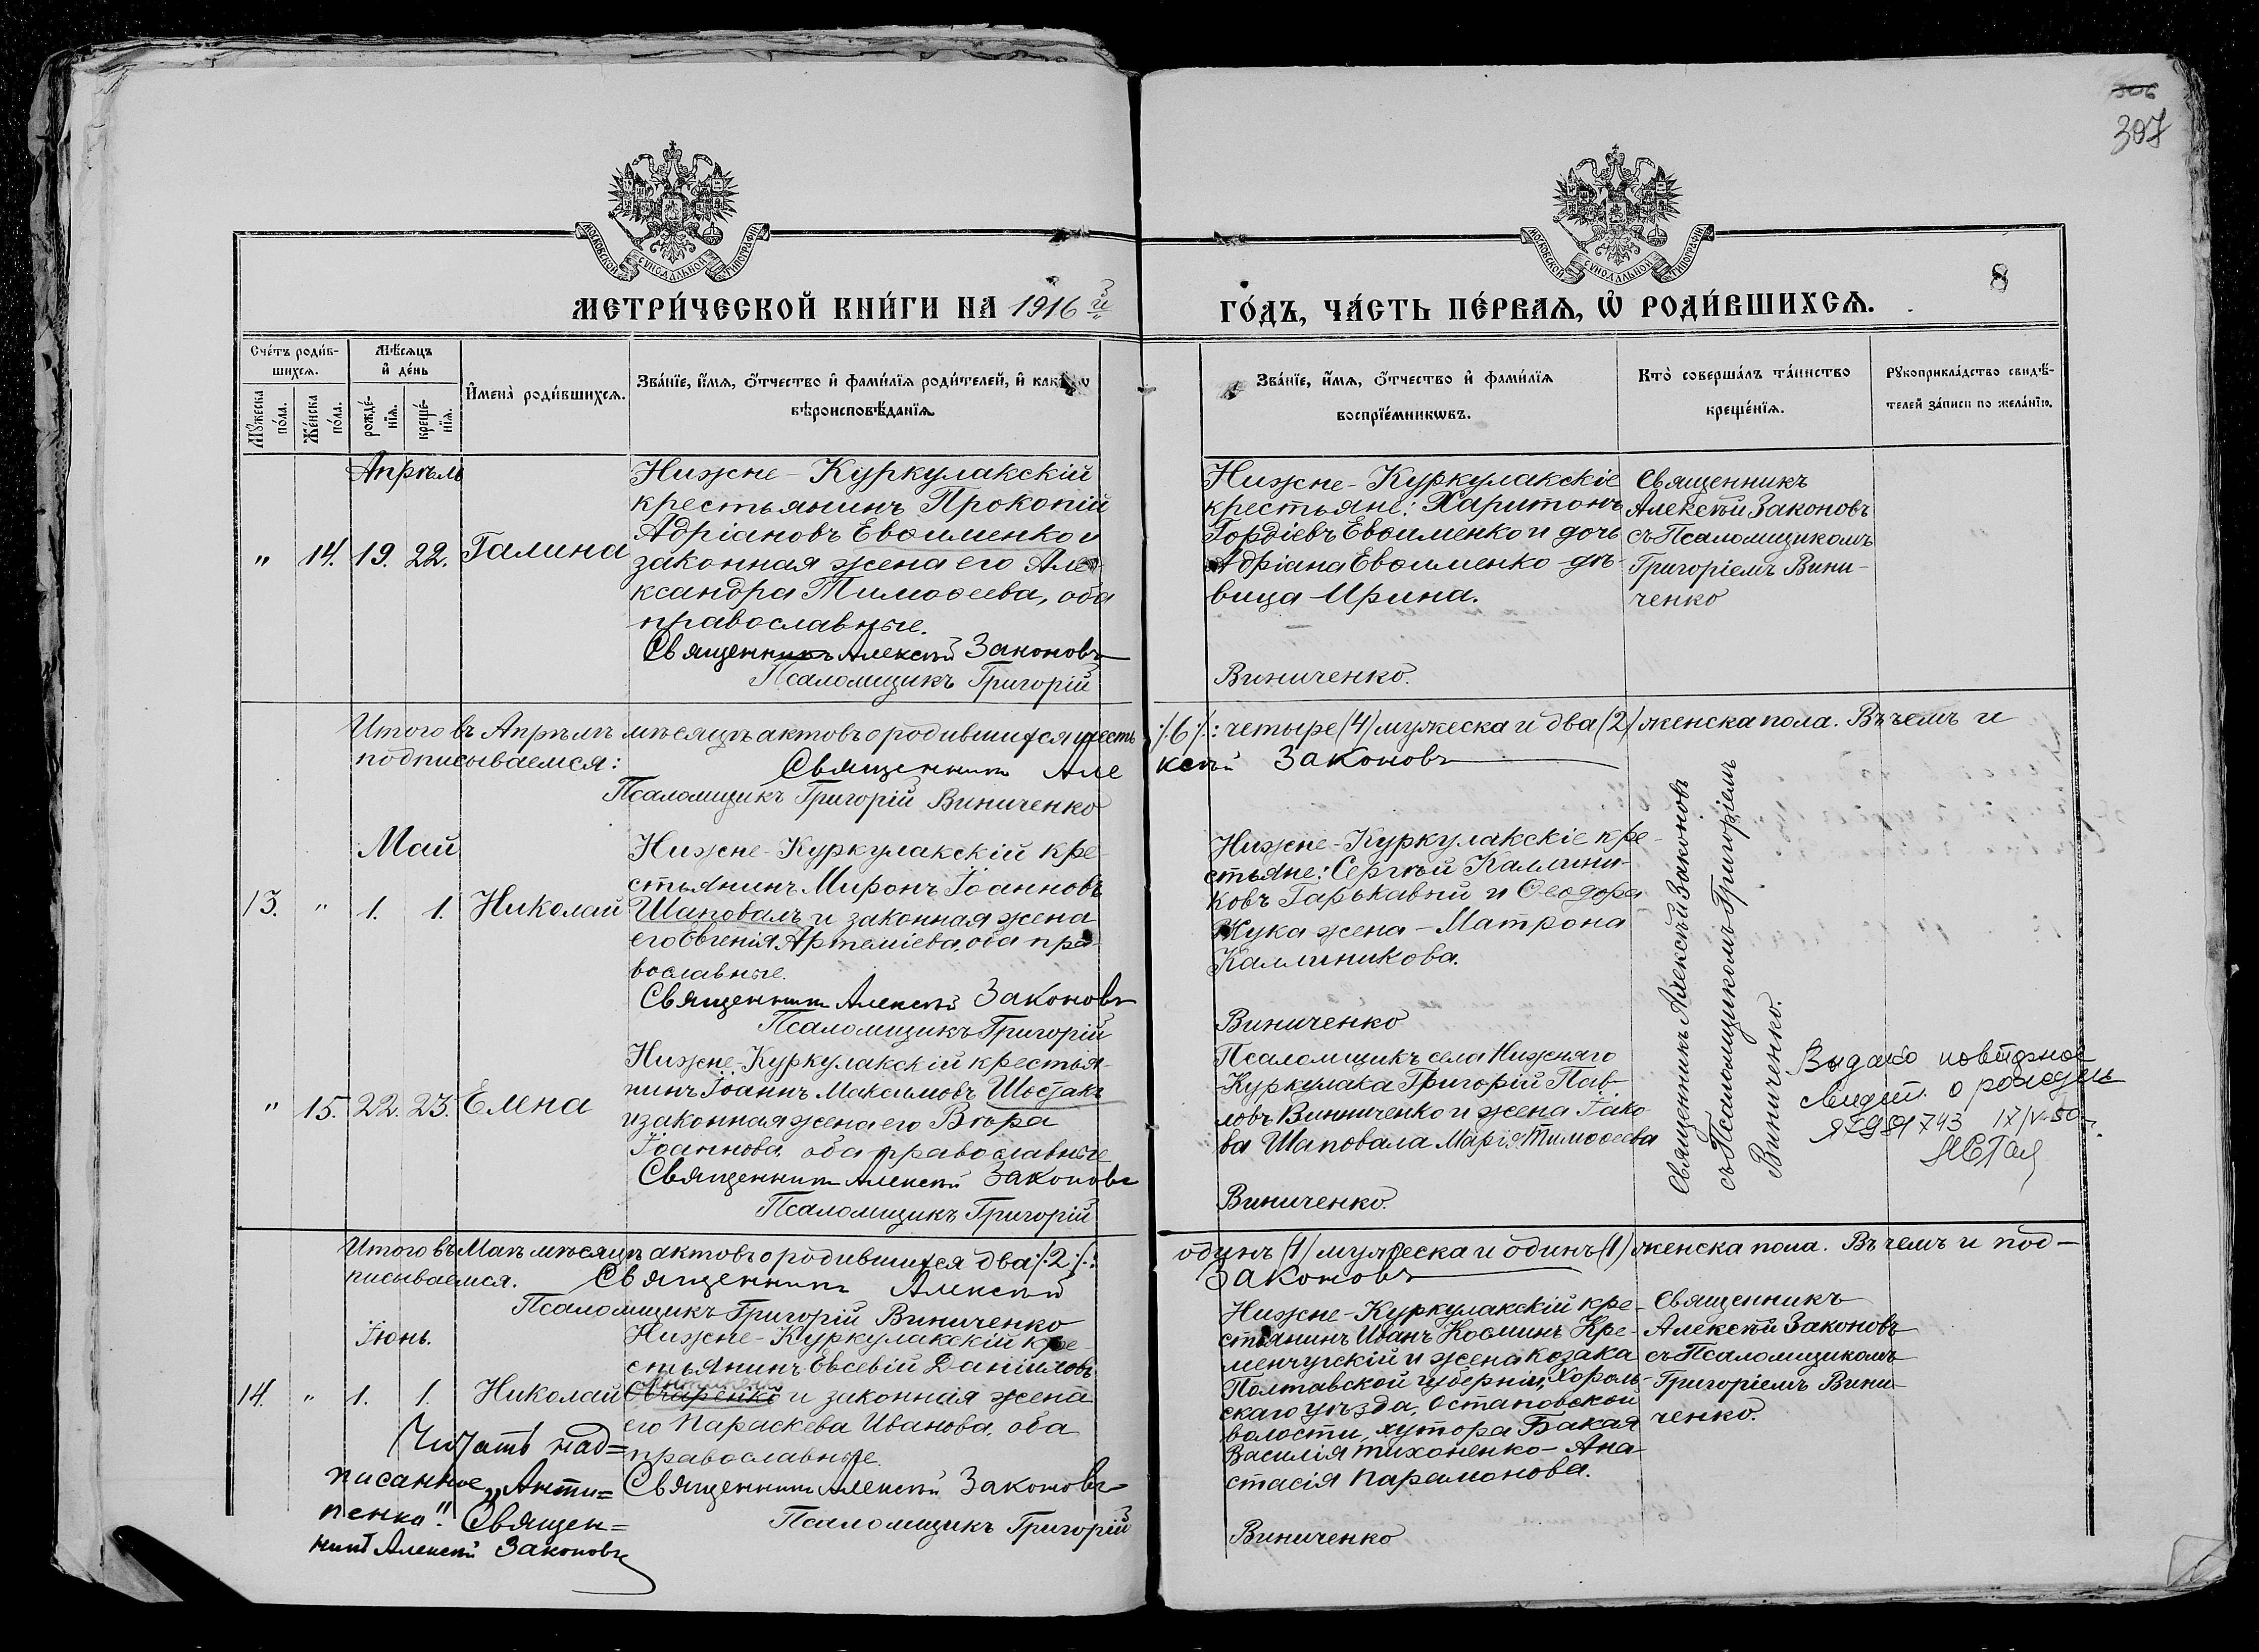 306
307
МОСКОВСКОЙ СѴНОДАЛЬНОЙ ТИПОГРАФІИ
МОСКОВСКОЙ СѴНОДАЛЬНОЙ ТИПОГРАФІИ
8
МЕТРИ́ЧЕСКОЙ КНИ́ГИ НА 1916 й
ГО́ДЪ, ЧА́СТЬ ПЕ́РВАѦ, Ѡ҆ РОДИ́ВШИХСѦ.
Сче́тъ роди́в-
шихсѧ.
Мꙋ́жеска по́ла.
Же́нска по́ла.
Мѣ́сѧцъ
и҆ де́нь
рожде́-
нїѧ.
креще́-
нїѧ.
И҆мена̀ роди́вшихсѧ.
Зва́нїе, и҆́мѧ, ѻ҆́тчество и҆ фами́лїѧ роди́телей, и҆ како́гѡ
вѣроисповѣ́данїѧ.
Зва́нїе, и҆́мѧ, ѻ҆́тчество и҆ фами́лїѧ
воспрїе́мникѡвъ.
Кто̀ соверша́лъ та́инство
креще́нїѧ.
Рꙋкоприкла́дство свидѣ́-
телей за́писи по жела́нїю.
Апрѣль
" 14. 19. 22. Галина
Нижне-Куркулакскій
крестьянинъ Прокопій
Адріановъ Евѳименко и
законная жена его Але-
ксандра Тимоѳеева, оба
православные.
Священникъ Алексѣй Законовъ
Псаломщикъ Григорій
Нижне-Куркулакскіе
крестьяне: Харитонъ
Гордіевъ Евѳименко и дочь
Адріана Евѳименко дѣ-
вица Ирина.
Виниченко.
Священникъ
Алексѣй Законовъ
съ Псаломщикомъ
Григоріемъ Вини-
ченко
"
Итого въ Апрѣлѣ мѣсяцѣ актовъ о родившихся шесть ./.6./.: четыре (4) мужеска и два (2) женска пола. Въ чемъ и
подписываемся: Священникъ Алексѣй Законовъ
Псаломщикъ Григорій Виниченко
Май
13. " 1. 1. Николай
Нижне-Куркулакскій кре-
стьянинъ Миронъ Іоанновъ
Шаповалъ и законная жена
его Евгенія Артеміева, оба пра-
вославные.
Священникъ Алексѣй Законовъ
Псаломщикъ Григорій
Нижне-Куркулакскіе кре-
стьяне: Сергѣй Каллини-
ковъ Гарькавый и Ѳеодора
Жука жена - Матрона
Каллиникова.
Виниченко
Священникъ Алексѣй Законовъ
съ Псаломщикомъ Григоріемъ
Виниченко.
" 15. 22. 23. Елена
Нижне-Куркулакскій крестья-
нинъ Іоаннъ Максимовъ Шостакъ
и законная жена его Вѣра
Іоаннова, оба православные
Священникъ Алексѣй Законовъ
Псаломщикъ Григорій
Псаломщикъ села Нижняго
Куркулака Григорій Пав-
ловъ Винниченко и жена Іако-
ва Шаповала Марія Тимоѳеева
Виниченко.
Видано повторное
свидет. о рожден
981743 17/V-50 г.
Итого въ Маѣ мѣсяцѣ актовъ о родившихся два ./.2./.: одинъ (1) мужеска и одинъ (1) женска пола. Въ чемъ и под-
писываемся. Священникъ Алексѣй Законовъ
Псаломщикъ Григорій Виниченко
Іюнь.
14. " 1. 1. Николай
Нижне-Куркулакскій кре-
стьянинъ Евсевій Даніиловъ
Антипенко
и законная жена
его Параскева Иванова, оба
православные.
Священникъ Алексѣй Законовъ
Псаломщикъ Григорій
Читать над=
писанное „Анти=
пенко". Священ=
никъ Алексѣй Законовъ
Нижне-Куркулакскій кре-
стьянинъ Иванъ Косминъ Кре-
менчугскій и жена козака
Полтавской губерніи, Хороль-
скаго уѣзда, Остаповской
волости, хутора Бакая
Василія Тихоненко - Ана-
стасія Парамонова.
Виниченко
Священникъ
Алексѣй Законовъ
съ Псаломщикомъ
Григоріемъ Вини-
ченко.